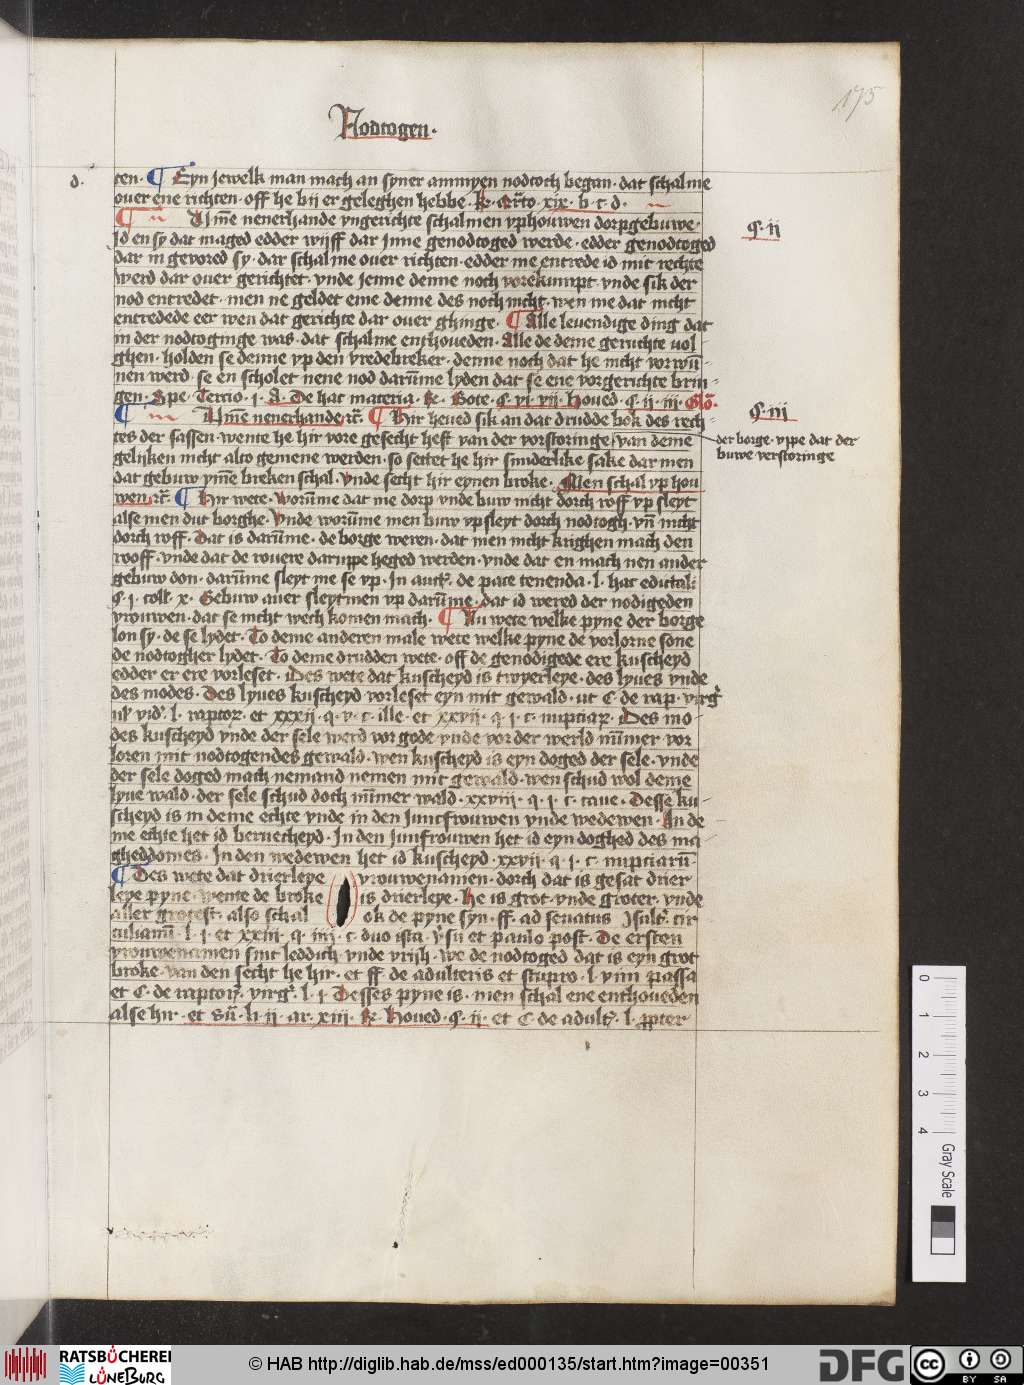 175
Nodtogen·
d.
ten· ¶ Eyn jewelk man mach an syner ammyen nodtoch began· dat schal me
ouer ene richten· off he bij er geleghen hebbe· xix· b· c· d·
¶ ij Vm̄e nenerhande vngerichte schal men vphouwen dorpgebuwe·
§· ij
Jd en sy dat maged edder wijff dar jnne genodtoged werde· edder genodtoged
dar in gevored sy· dar schal me ouer richten· edder me entrede id mit rechte
werd dar ouer gerichtet· vnde jenne denne noch vorekumpt· vnde sik der
nod entredet· men ne geldet eme denne des noch nicht· wen me dat nicht
entredede eer wen dat gerichte dar ouer ghinge· ¶ Alle leuendige ding dat
in der nodtoginge was· dat schal me enthoueden· Alle de deme geruchte vol
ghen· holden se denne vp den vredebreker· denne noch dat he nicht vorwūn
nen werd· se en scholet nene nod darūme lyden dat se ene vorgerichte brin-
gen· Spe· Tercio· j· A· De hac materia· R· Bote· §· vi· vij· Houed· §· ij· iij· Glo·
¶ iij Vm̄e nenerhande rc̄· ¶ Hir heued sik an dat drudde bok des rech-
§· iij
tes der sassen· wente he hir vore gesecht heft van der vorstoringe/ van deme
der borge· vppe dat der
buwe verstoringe
gelijken nicht alto gemene werden· so settet he hir sunderlike sake dar men
dat gebuw vm̄e breken schal· Vnde secht hir eynen broke· Men schal vp hou
wen rc̄· ¶ Hir wete· Worūme dat me dorp vnde buw nicht dorch roff vp sleyt
alse men dut borghe· Vnde worūme men buw vp sleyt dorch nodtogh· vn̄ nicht
dorch roff· Dat is darūme· de borge weren· dat men nicht krighen mach den
rooff· vnde dat de rouere daruppe heged werden· vnde dat en mach nen ander
gebuw don· darūme sleyt me se vp· Jn auct· de pace tenenda· l· hac edictali·
§· j· coll· x· Gebuw auer sleyt men vp darūme· dat id wered der nodigeden
vrouwen· dat se nicht wech komen mach· ¶ Nu wete welke pyne der borge
lon sy· de se lydet· To deme anderen male wete welke pyne de vorlorne sone
de nodtogher lydet· To deme drudden wete· off de genodigede ere kuscheyd
edder er ere vorleset· Des wete dat kuscheyd is twyerleye· des lyues vnde
des modes· Des lyues kuscheyd vorleset eyn mit gewald· ut C· de rap· virg·
l· raptor· et xxxij· q· v· c· ille· et xxvij· q· j· c· nupciar· Des mo-
des kuscheyd vnde der sele werd vor gode vnde vor der werld nūmer vor
loren mit nodtogendes gewald· wen kuscheyd is eyn doged der sele· vnde
der sele doged mach nemand nemen mit gewald· wen schud wol deme
lyue wald· der sele schud doch nūmer wald· xxviij· q· j· c· caue· Desse ku-
scheyd is in deme echte vnde in den Junckfrouwen vnde wedewen· An de
me echte het id beruecheyd· Jn den junfrouwen het id eyn doghed des ma
gheddomes· Jn den wedewen het id kuscheyd· xxvij· q· j· c· nupciarū·
¶ Des wete dat drierleye vrouwenamen· dorch dat is gesat drier
leye pyne· wente de broke is drierleye· He is grot· vnde groter· vnde
aller grotest· also schal ok de pyne syn· ff· ad senatus
l· j· et xxiij· q· iiij· c· duo ista· et paulo post· De ersten
vrouwenamen sint leddich vnde vrijh· we de nodtoged dat is eyn grot
broke· van den secht he hir· et ff· de adulteris et stupro· l· vim passa
et C· de raptor· virg· l· j· Desses pyne is· men schal ene enthoueden
alse hir· et li· ij· ar· xiij· R· Houed· §· ij· et C· de adult· l·
0
1
2
3
4
Gray Scale
RATSBÜCHEREI
LÜNEBURG
© HAB http://diglib.hab.de/mss/ed000135/start.htm?image=00351
DFG
cc
BY SA